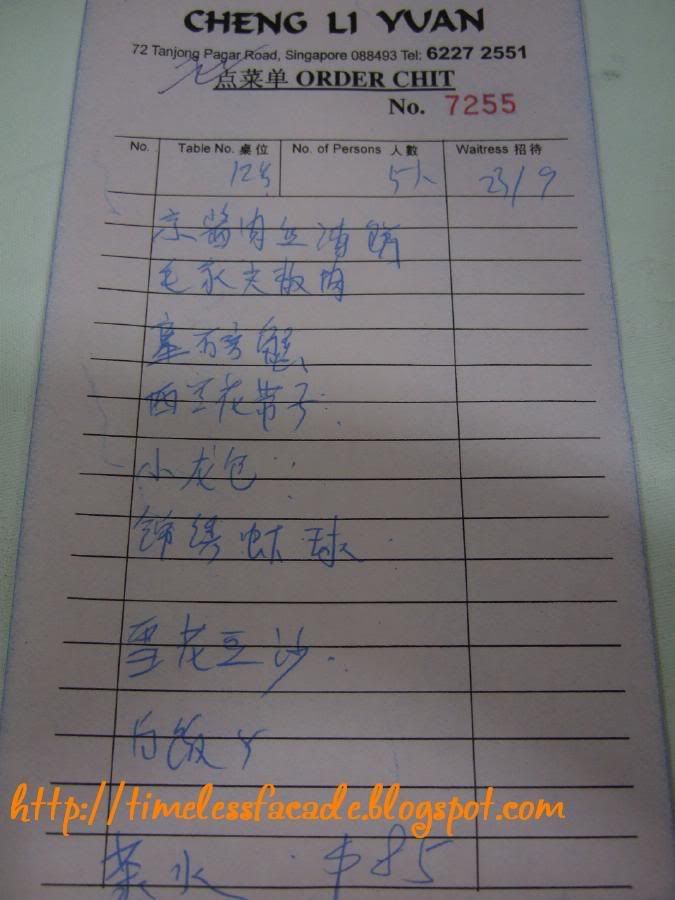 CHENG LI YUAN
72 Tanjong Pagar Road, Singapore 088493 Tel: 6227 2551
点菜单 ORDER CHIT
No. 7255
No. Table No. 桌位 No. of Persons 人數 Waitress 招待
5人 23/9
京酱肉丝
毛家夫
蟹
西兰花带子
小龙包
锦绣虾球
雪花豆沙
白饭
http://timelessfacade.blogspot.com
茶水 $85